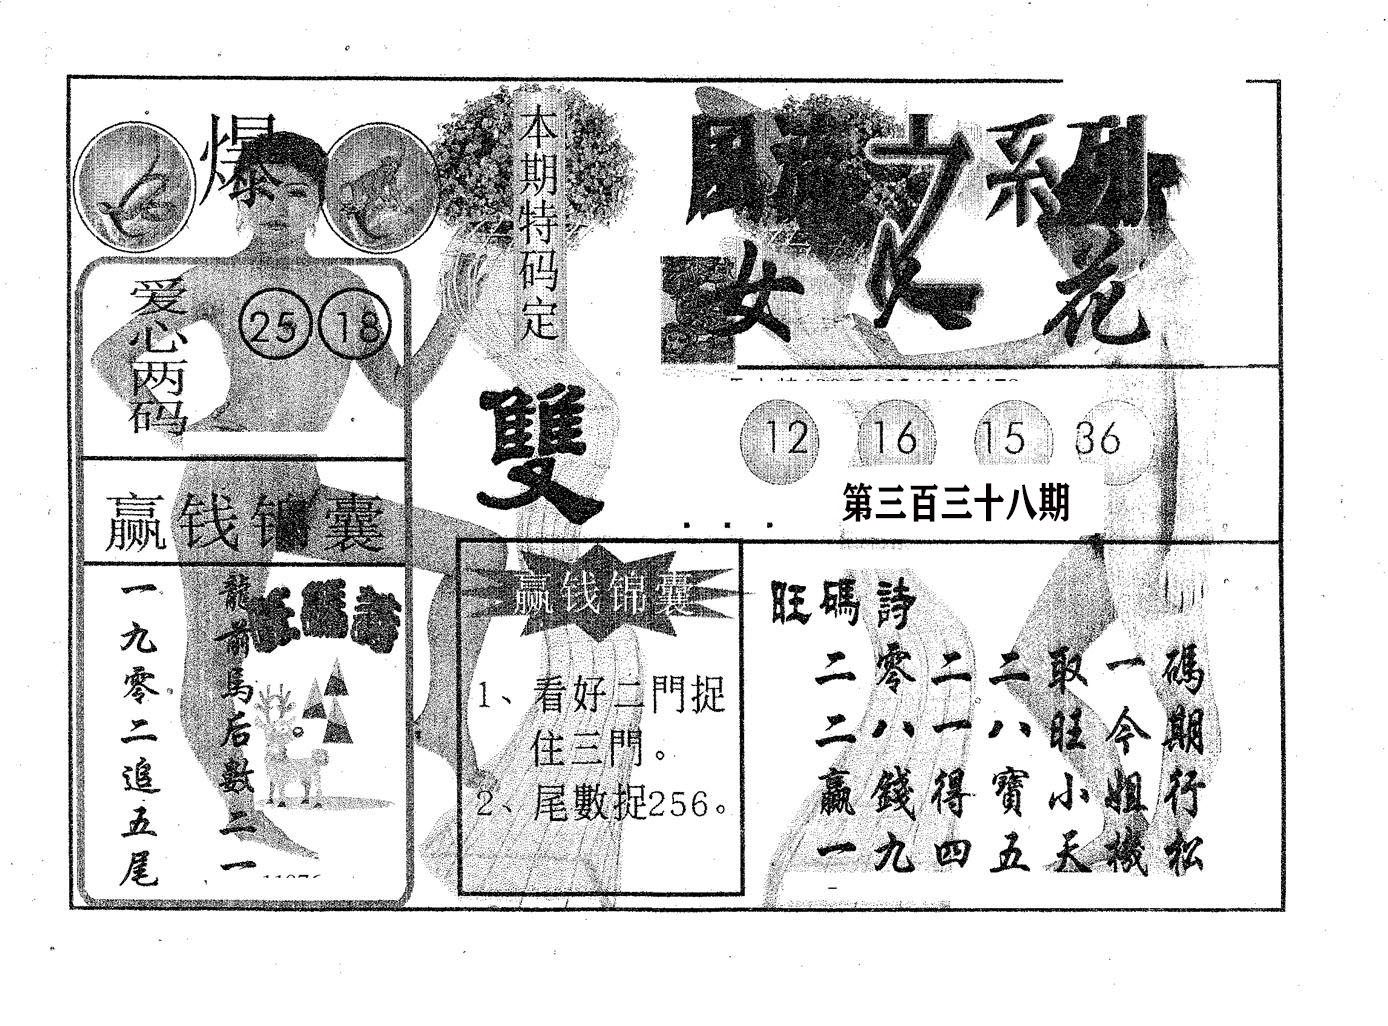 爆
爱心两码
25 18
赢钱锦囊
龍前馬后數二一
一九零二追五尾
旺碼詩
本期特码定
雙
系列
女人花
12 16 15 36
第三百三十八期
赢钱锦囊
1、看好二門捉
住三門。
2、尾數捉256。
旺碼詩
二零二二取一碼
二八一八旺今期
赢錢得寶小姐行
一九四五天機松